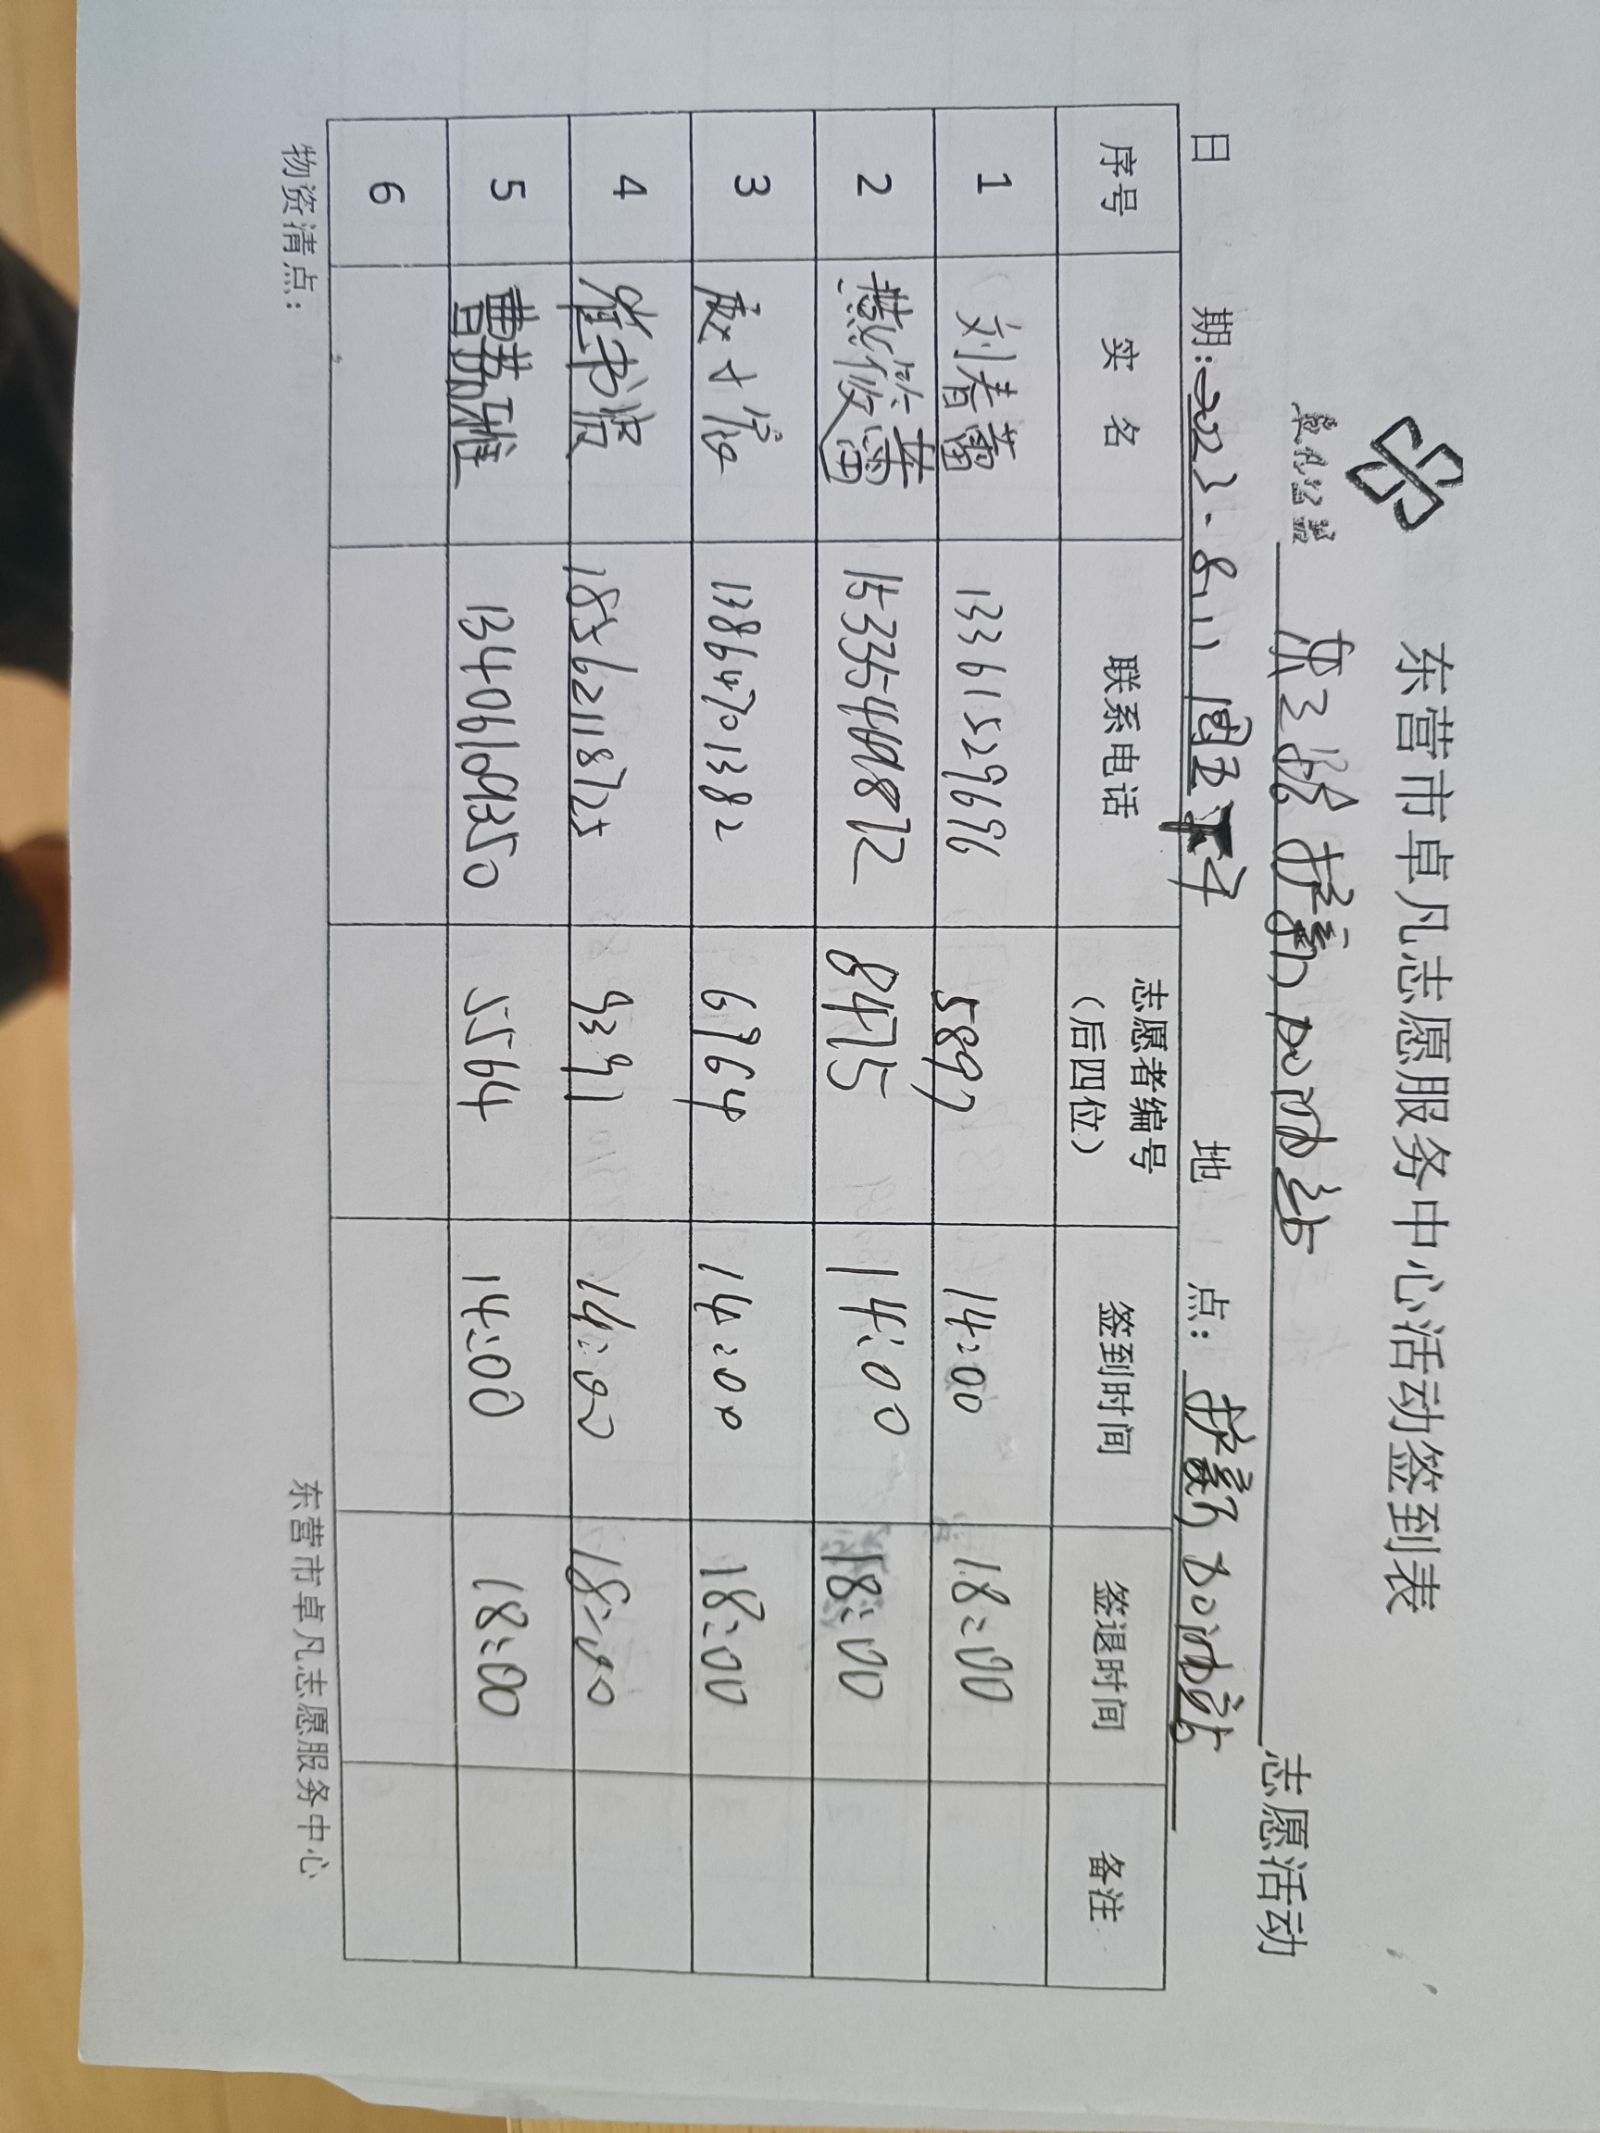 东营市卓凡志愿服务中心活动签到表
卓凡公益 东三路护新加油站 志愿活动
日 期：2023.8.11 周五下午 地 点：护新加油站
序号 实 名 联系电话 志愿者编号（后四位） 签到时间 签退时间 备注
1 刘春蕾 13361529696 5897 14:00 18:00
2 燕筱蕾 8475 14:00 18:00
3 13864701382 6764 14:00 18:00
4 崔书滨 18562118725 9391 14:00 18:00
5 曹荔雅 13406109350 5564 14:00 18:00
6
物资清点：
东营市卓凡志愿服务中心